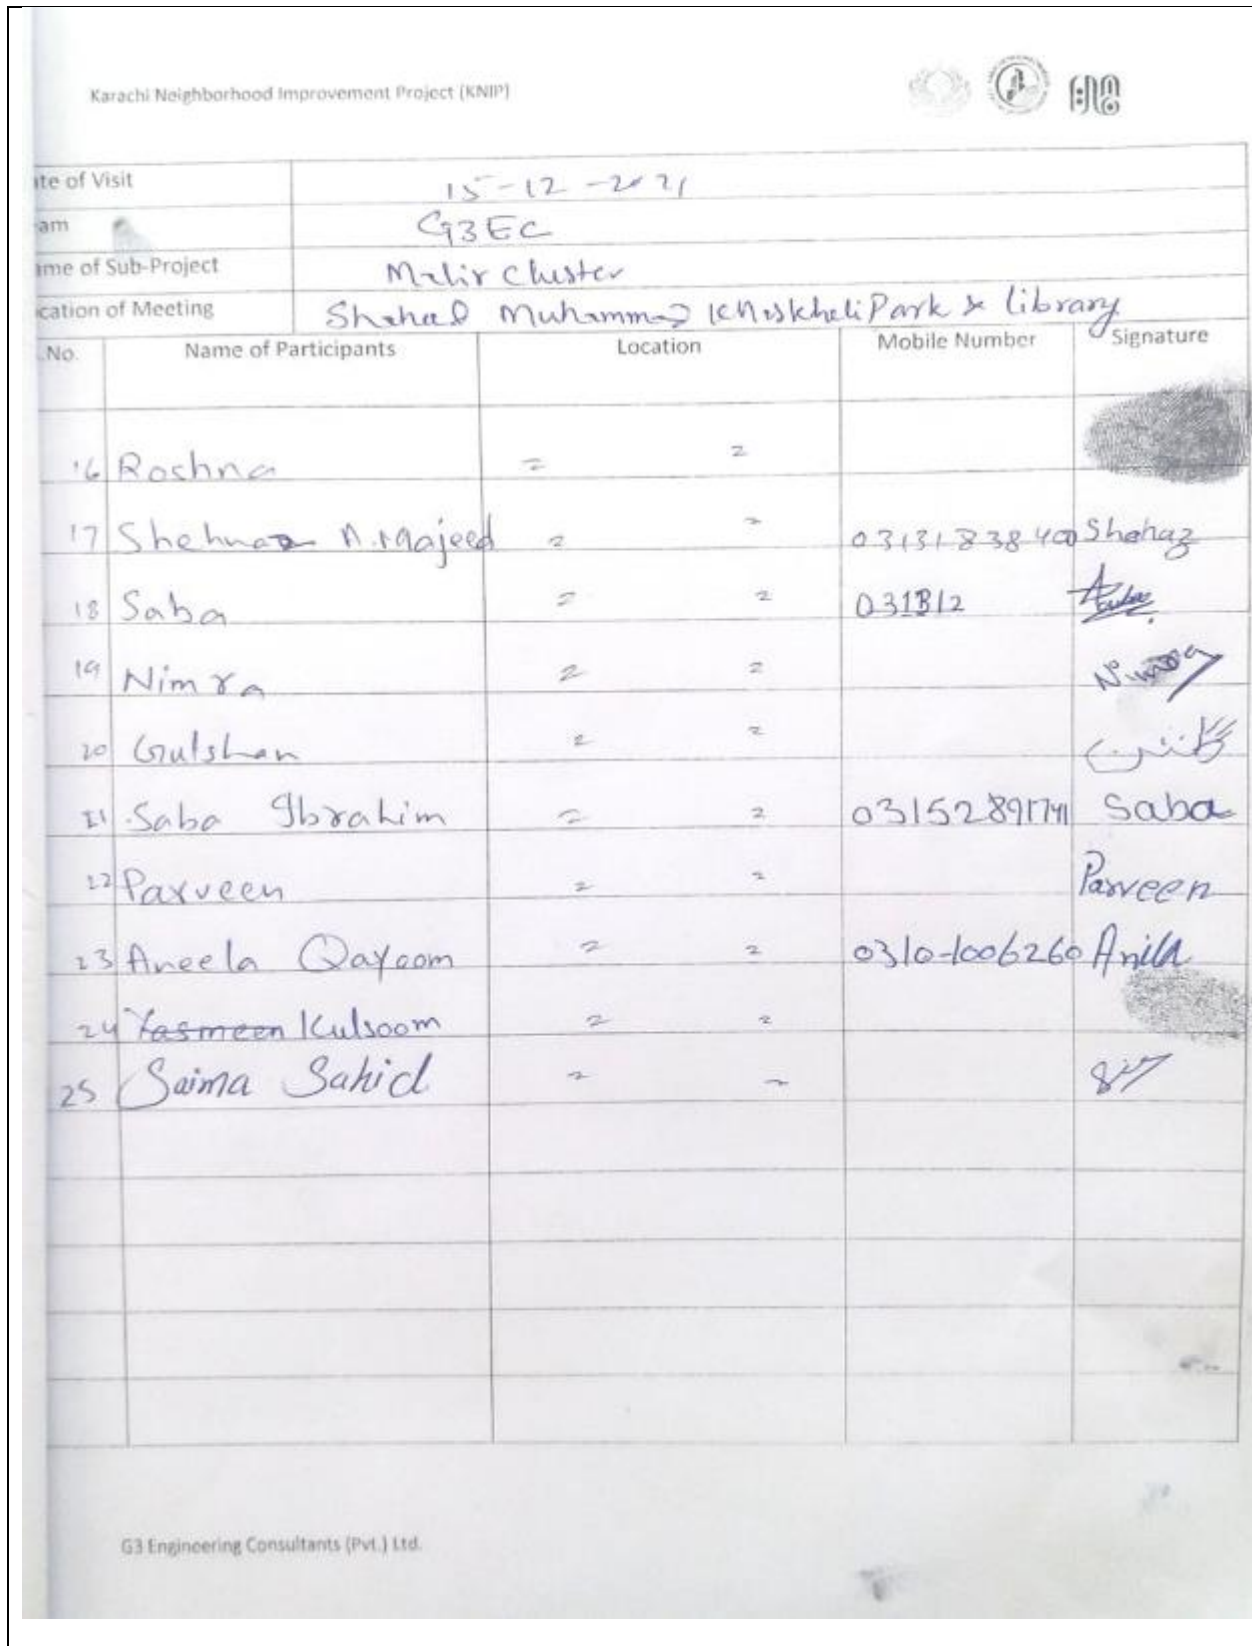 Karachi Neighborhood Improvement Project (KNIP)
ate of Visit 15-12-2021
am G3EC
ame of Sub-Project Malir Cluster
cation of Meeting Shaheed Muhammad Khaskheli Park & library
.No. Name of Participants Location Mobile Number Signature
16 Roshna
17 Shehnaz A. Majeed 03131838400 Shehaz
18 Saba 031312
19 Nimra Nimra
20 Gulshan گلشن
21 Saba Ibrahim 03152891741 Saba
22 Parveen Parveen
23 Aneela Qayoom 0310-1006260 Anila
24 Yasmeen Kulsoom
25 Saima Sahid
G3 Engineering Consultants (Pvt.) Ltd.